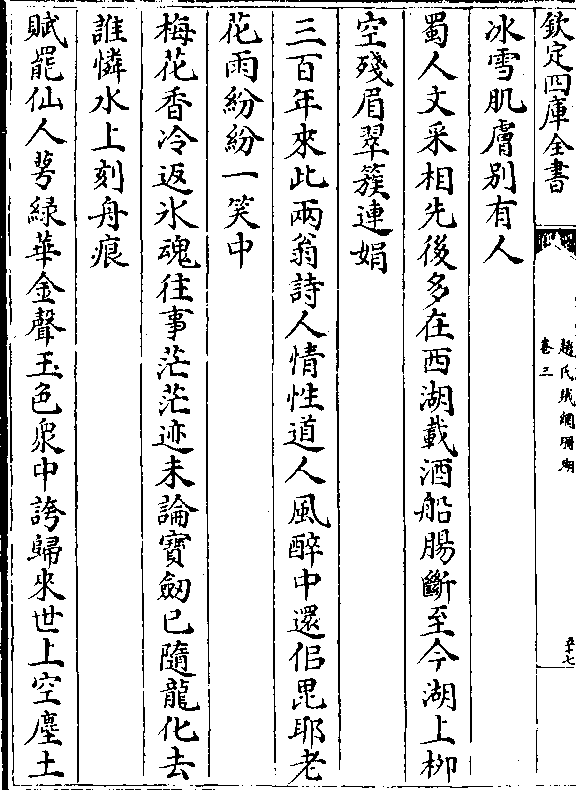 欽定四庫全書
趙氏鐵網珊瑚
卷三
五十七
冰雪肌膚别有人
蜀人文采相先後多在西湖載酒船腸斷至今湖上栁
空殘眉翠簇連娟
三百年來此兩翁詩人情性道人風醉中還侣毘耶老
花雨紛紛一笑中
梅花香冷返氷魂往事茫茫迹未論寶劒已隨龍化去
誰憐水上刻舟痕
賦罷仙人萼緑華金聲玉色衆中誇歸來世上空塵土